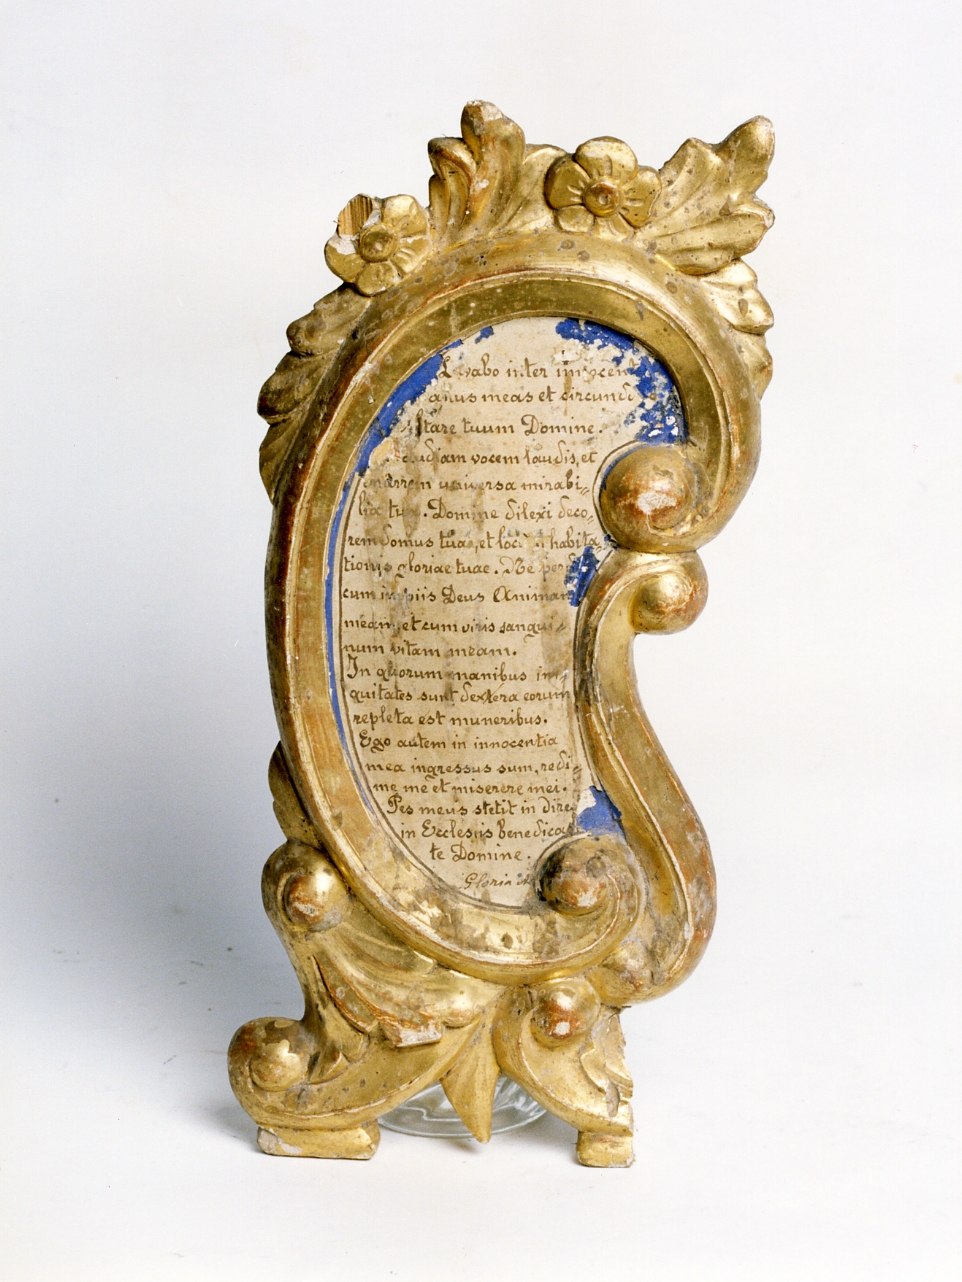 Lavabo inter innocen
anus meas et circumd
ltare tuum Domine.
udiam vocem laudis, et
narrem universa mirabi=
lia tua. Domine dilexi deco=
rem domus tuae, et loc habita
tionis gloriae tuae. Ne perd
cum impiis Deus Animam
meam, et cum viris sangui
num vitam meam.
In quorum manibus ini
quitates sunt dextera eorum
repleta est muneribus.
Ego autem in innocentia
mea ingressus sum, redi=
me me et miserere mei.
Pes meus stetit in dire
in Ecclesiis benedica
te Domine.
Gloria